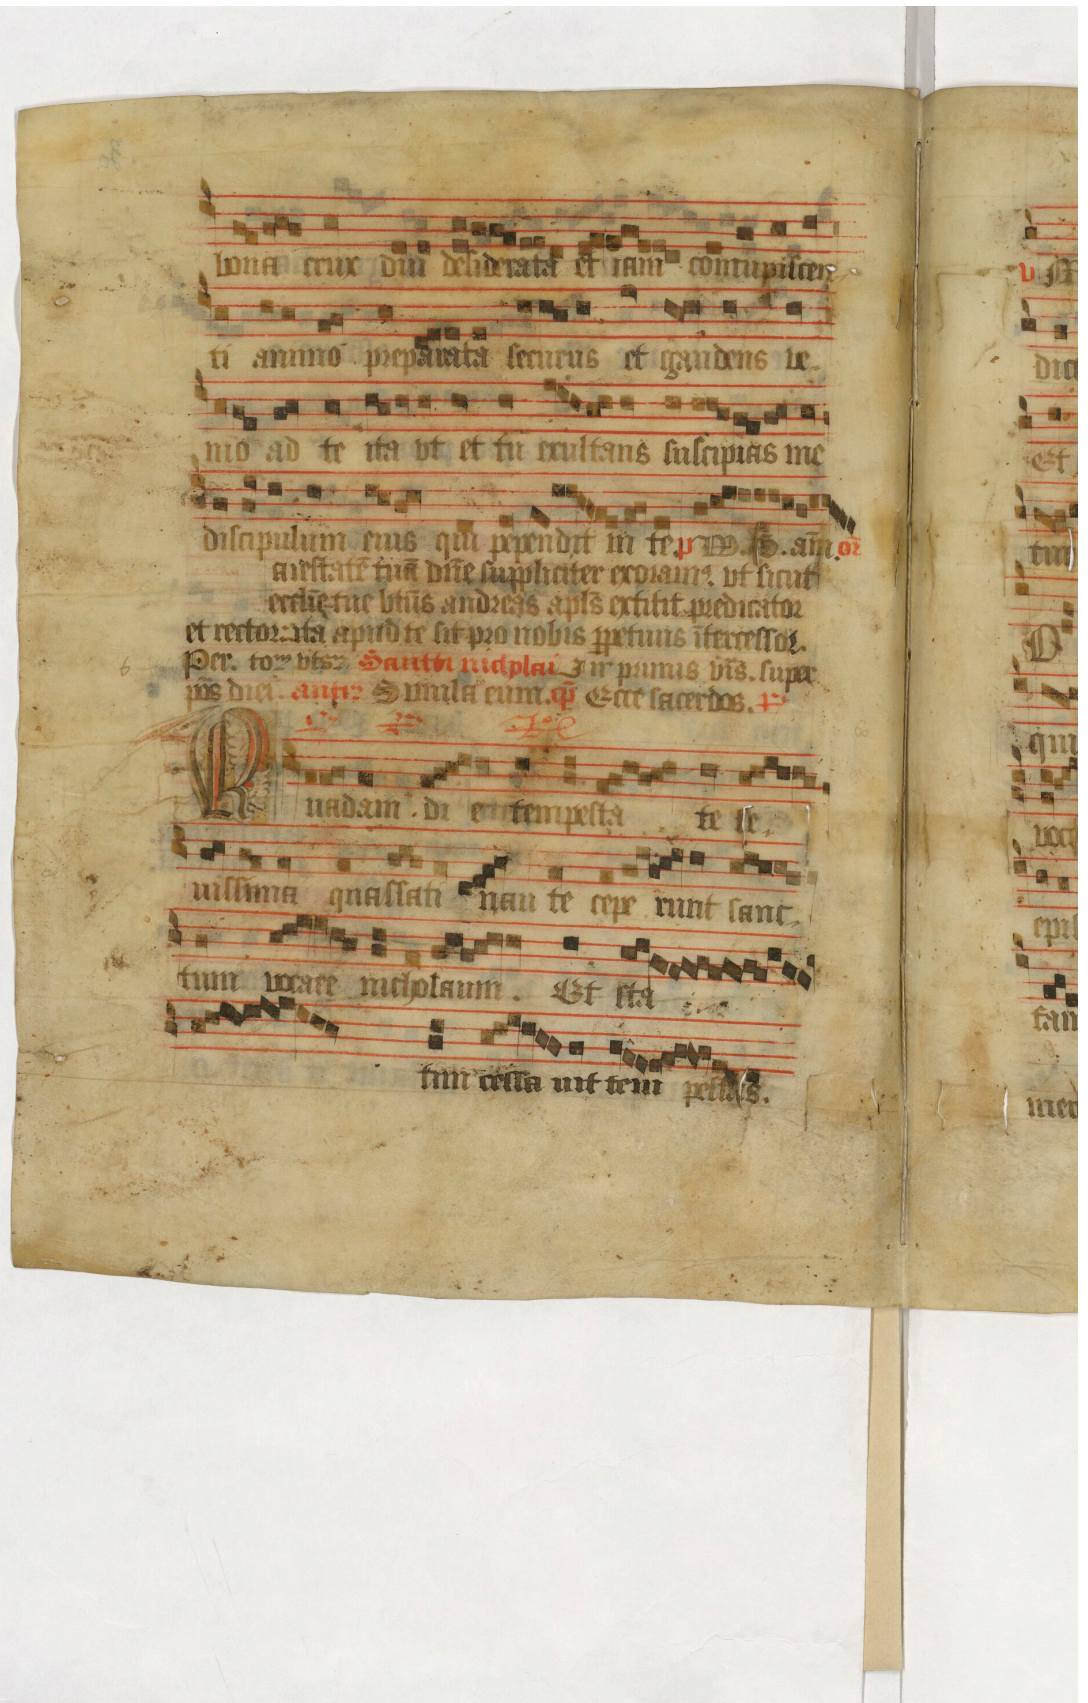 bona crux diu desiderata et iam concupiscen
ti animo preparata securus et gaudens ve
nio ad te ita vt et tu exultans suscipias me
discipulum eius qui pependit in te p M. . am or
aiestatē tuā dn̄e suppliciter exoram⁹ vt sicut
ecclīe tue bt̄us andreas apl̄s extitit predicator
et rector ita apud te sit pro nobis ꝑpetuus ītercessor.
Per. Sancti nicholai In primis vīs. super
pōs diei. Simila eum. Ecce sacerdos.
uadam di e tempesta te se
uissima quassati nau te cepe runt sanc
tum vocare nicholaum. Et sta
tim cessa uit tem pestas.
v
dict
Et
tur
qui
voc
epis
fam
mer